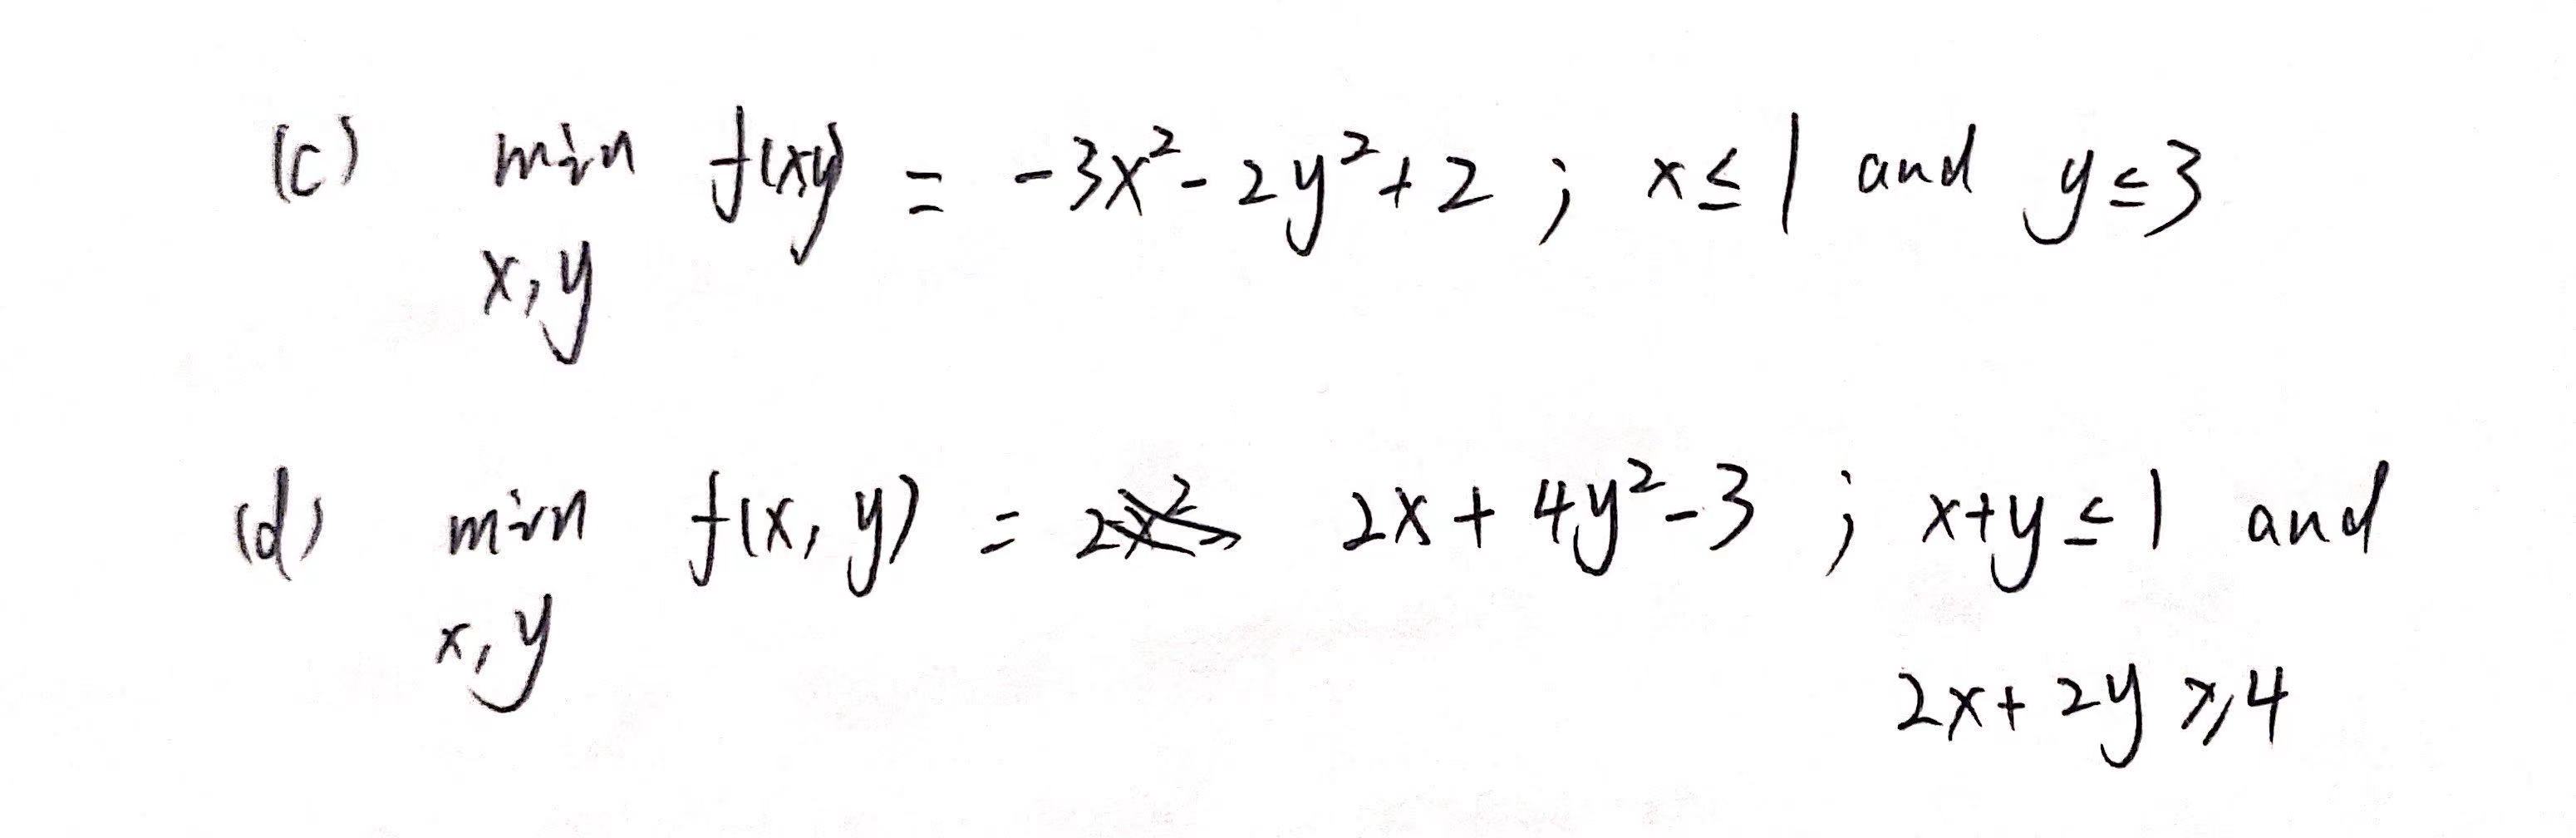 (c) min f(x,y) = -3x² - 2y² + 2 ; x ≤ 1 and y ≤ 3
x, y
(d) min f(x, y) = 2x + 4y² - 3 ; x+y ≤ 1 and
x, y
2x + 2y ≥ 4